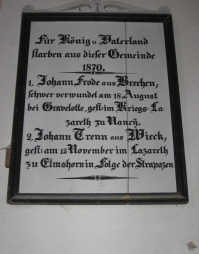 Für König u. Vaterland
starben aus dieser Gemeinde
1870.
1. Johann Frode aus Breehen,
schwer verwundet am 18. August
bei Gravelotte, gest: im Kriegs-La
zareth zu Nancÿ.
2. Johann Trenn aus Wieck,
gest: am 12 November im Lazareth
zu Elmshorn in Folge der Strapazen